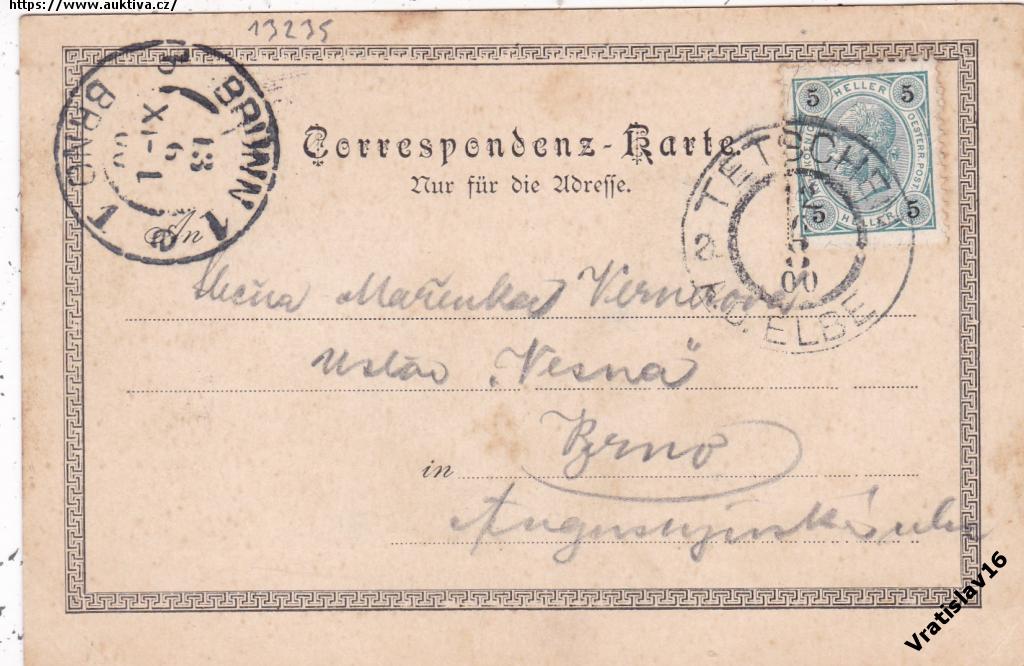 https://www.auktiva.cz/
13235
Correspondenz-Karte.
Nur für die Adresse.
BRÜNN 1
BRNO 1
13
6
XI-1
5 HELLER 5
OESTERR.POST
5 HELLER 5
TETSCHEN
A.D. ELBE
00
An
Slečna Mařenka Vernerova
Ustav „Vesna"
in Brno
Augustýnská ulice
Vratislav16